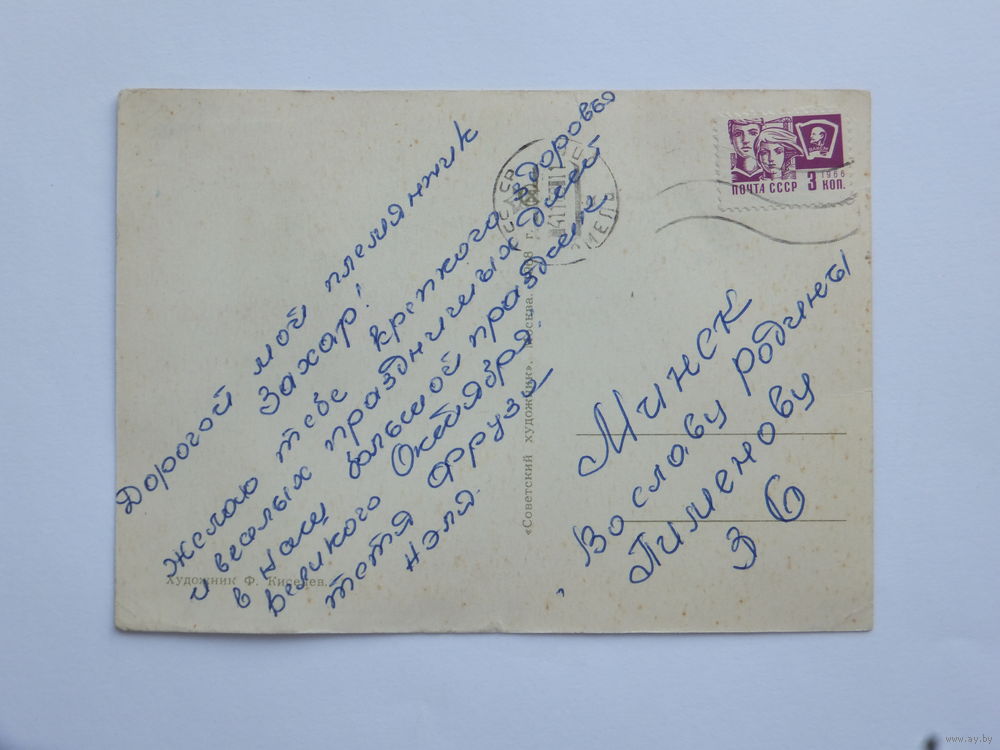 Дорогой мой племянник
Захар!
желаю тебе крепкого здоровья
и веселых праздничных дней
в наш большой праздник
Великого Октября.
тетя Фрузу
Нэля.
Художник Ф. Киселев.
«Советский художник». Москва. 1968 г.
СССР
ПОЧТА СССР 3 КОП.
1966
ВЛКСМ
Минск
Во славу родины
Пименову
З Б
www.ay.by